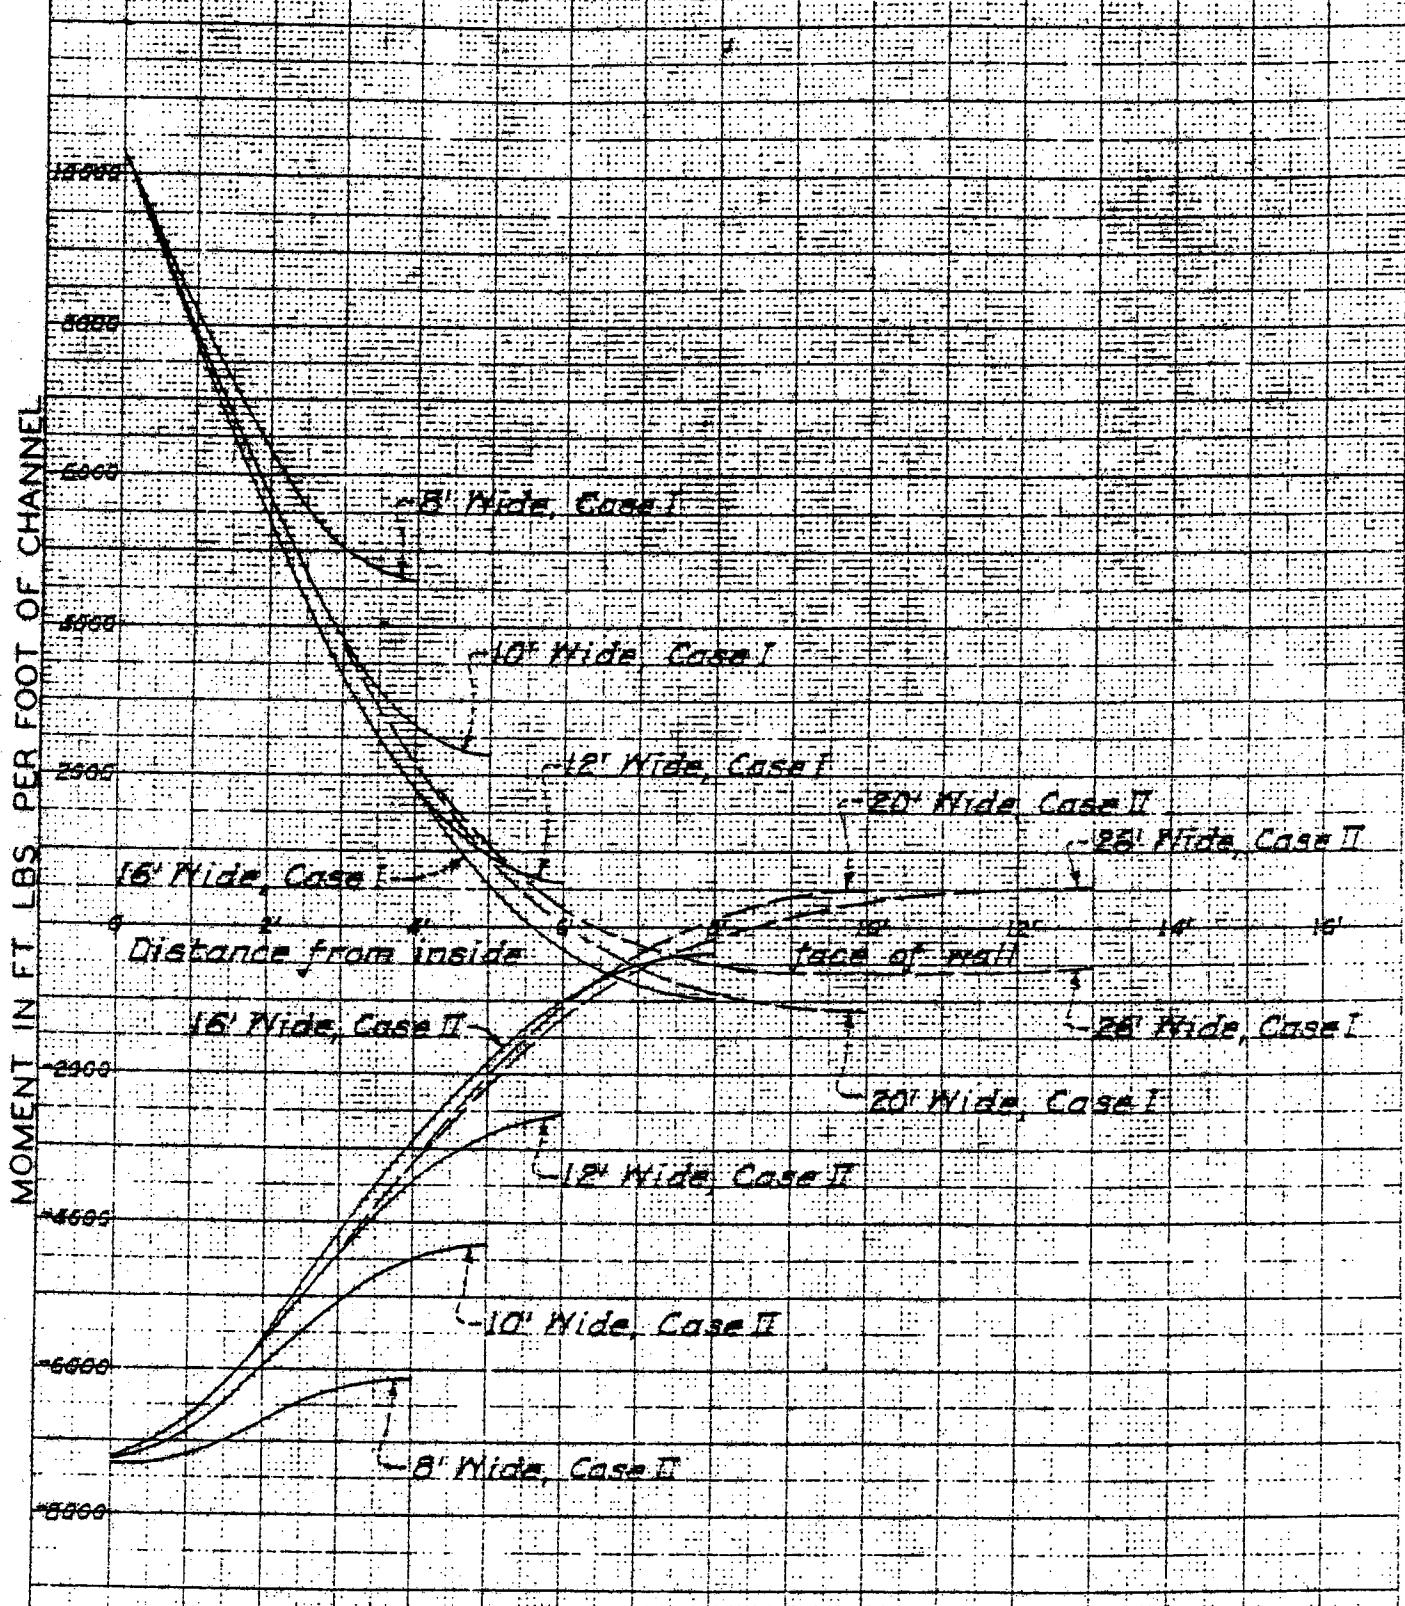 MOMENT IN FT LBS. PER FOOT OF CHANNEL
10000
8000
6000
4000
2000
8' Wide, Case I
10' Wide, Case I
12' Wide, Case I
20' Wide, Case II
26' Wide, Case II
16' Wide, Case I
0 2' 4' 6' 8' 10' 12' 14' 16'
Distance from inside face of wall
16' Wide, Case II
26' Wide, Case I
-2000
20' Wide, Case I
12' Wide, Case II
-4000
10' Wide, Case II
-6000
8' Wide, Case II
-8000